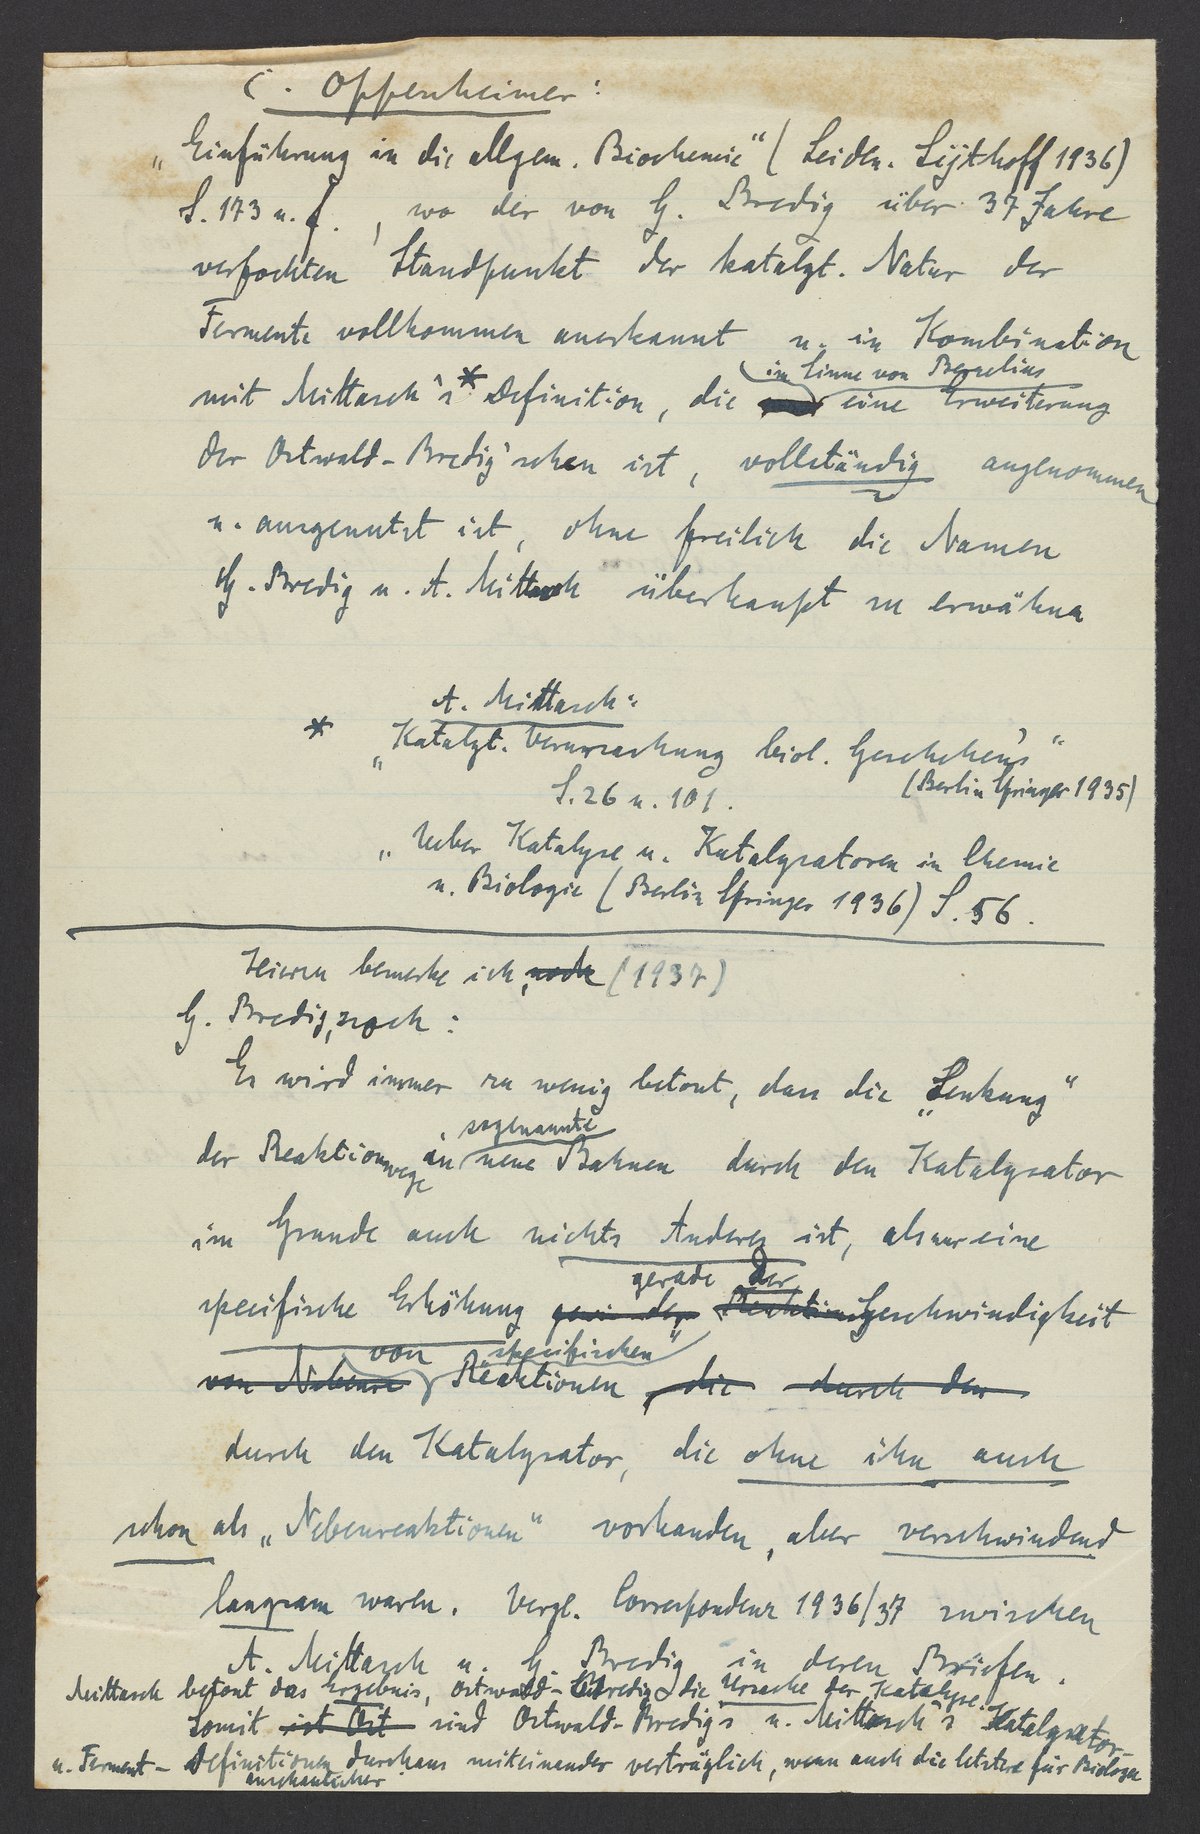 C. Oppenheimer:
„Einführung in die allgem. Biochemie“ (Leiden. Sijthoff 1936)
S. 173 u. f., wo der von G. Bredig über 37 Jahre
verfochten Standpunkt der katalyt. Natur der
Fermente vollkommen anerkannt u. in Kombination
im Sinne von Berzelius
mit Mittasch's * Definition, die eine Erweiterung
der Ostwald-Bredig'schen ist, vollständig angenommen
u. ausgenutzt ist, ohne freilich die Namen
G. Bredig u. A. Mittasch überhaupt zu erwähnen
A. Mittasch:
* „Katalyt. Verursachung biol. Geschehens“
(Berlin Springer 1935)
S. 26 u. 101.
„Ueber Katalyse u. Katalysatoren in Chemie
u. Biologie (Berlin Springer 1936) S. 56.
Hierzu bemerke ich, noch (1937)
G. Bredig, noch:
Es wird immer zu wenig betont, dass die „Lenkung“
sogenannte
der Reaktionswege in neue Bahnen durch den Katalysator
im Grunde auch nichts Anderes ist, als nur eine
gerade der
specifische Erhöhung der Reaktions Geschwindigkeit
von „specifischen“
von Nebenre Reaktionen, die durch den
durch den Katalysator, die ohne ihn auch
schon als „Nebenreaktionen“ vorhanden, aber verschwindend
langsam waren. Vergl. Correspondenz 1936/37 zwischen
A. Mittasch u. G. Bredig in deren Briefen.
Mittasch betont das Ergebnis, Ostwald-Bredig die Ursache der Katalyse.
Somit ist Ost sind Ostwald-Bredig's u. Mittasch's Katalysator-
u. Ferment-Definitionen durchaus miteinander verträglich, wenn auch die letztere für Biologen
anschaulicher